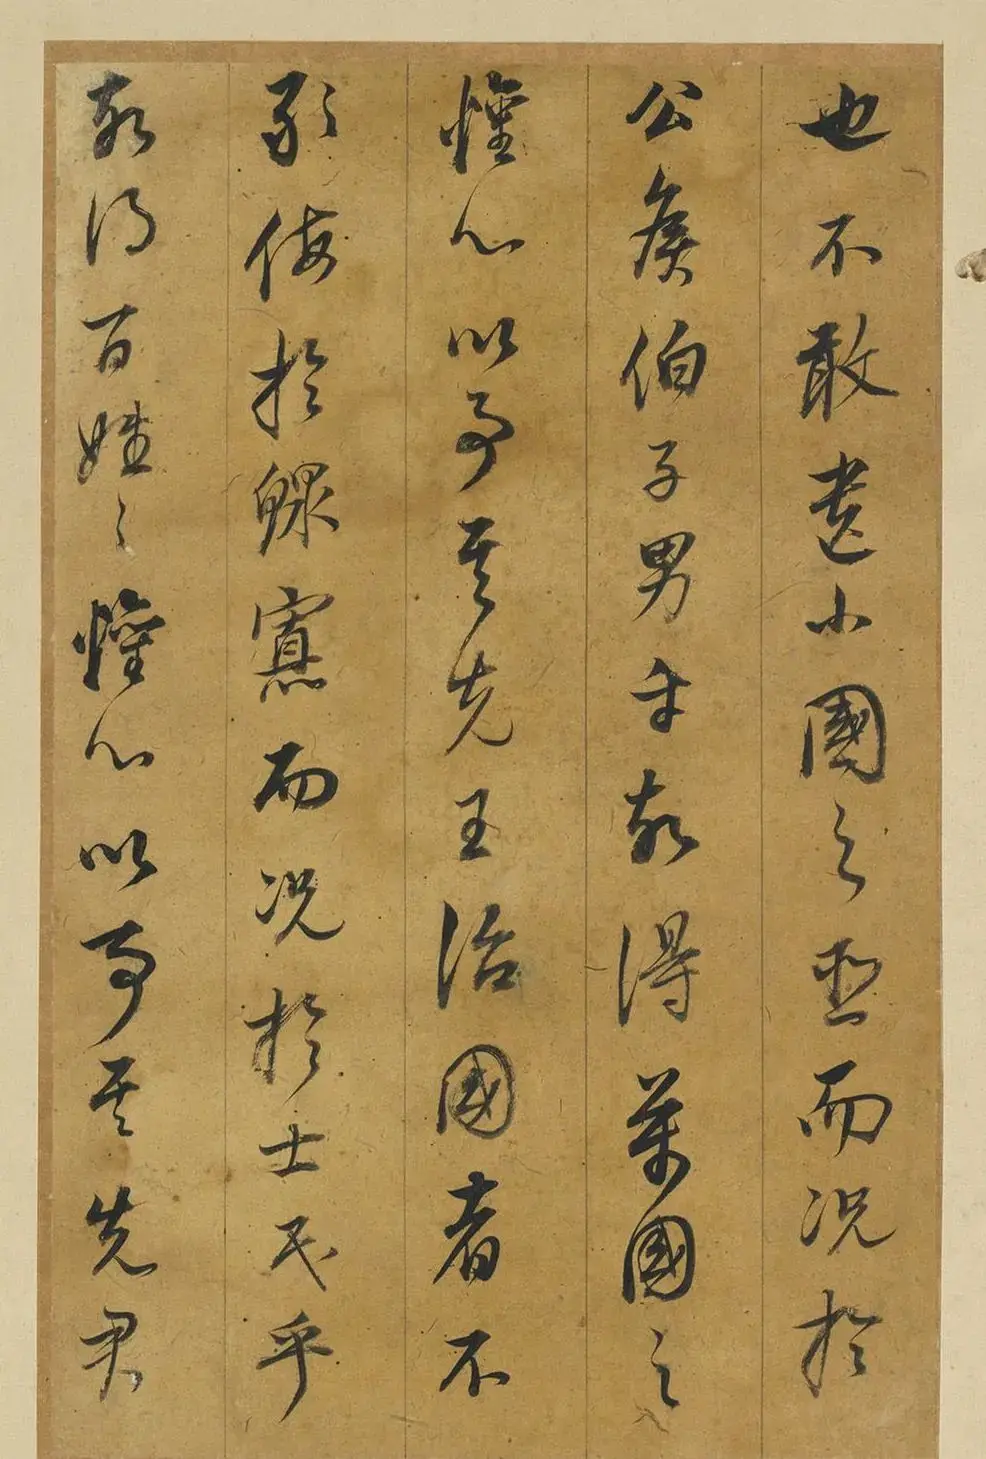 也不敢遺小國之臣而況於
公侯伯子男乎故得萬國之
懽心以事其先王治國者不
敢侮於鰥寡而況於士民乎
故得百姓之懽心以事其先君